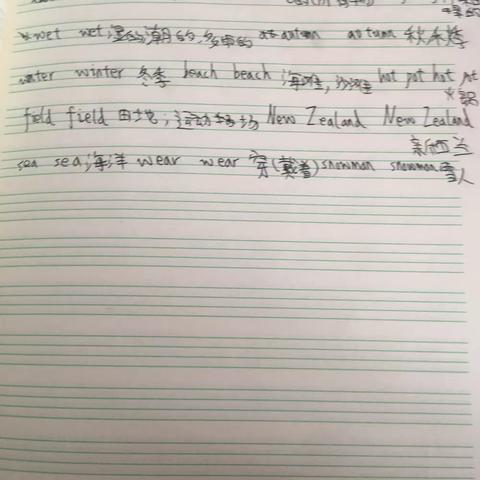 wet wet 湿的,潮的,多雨的 autumn autumn 秋季
winter winter 冬季 beach beach 海滩,沙滩 hot pot hot pot
火锅
field field 田地;运动场 New Zealand New Zealand
新西兰
sea sea 海洋 wear wear 穿(戴着) snowman snowman 雪人